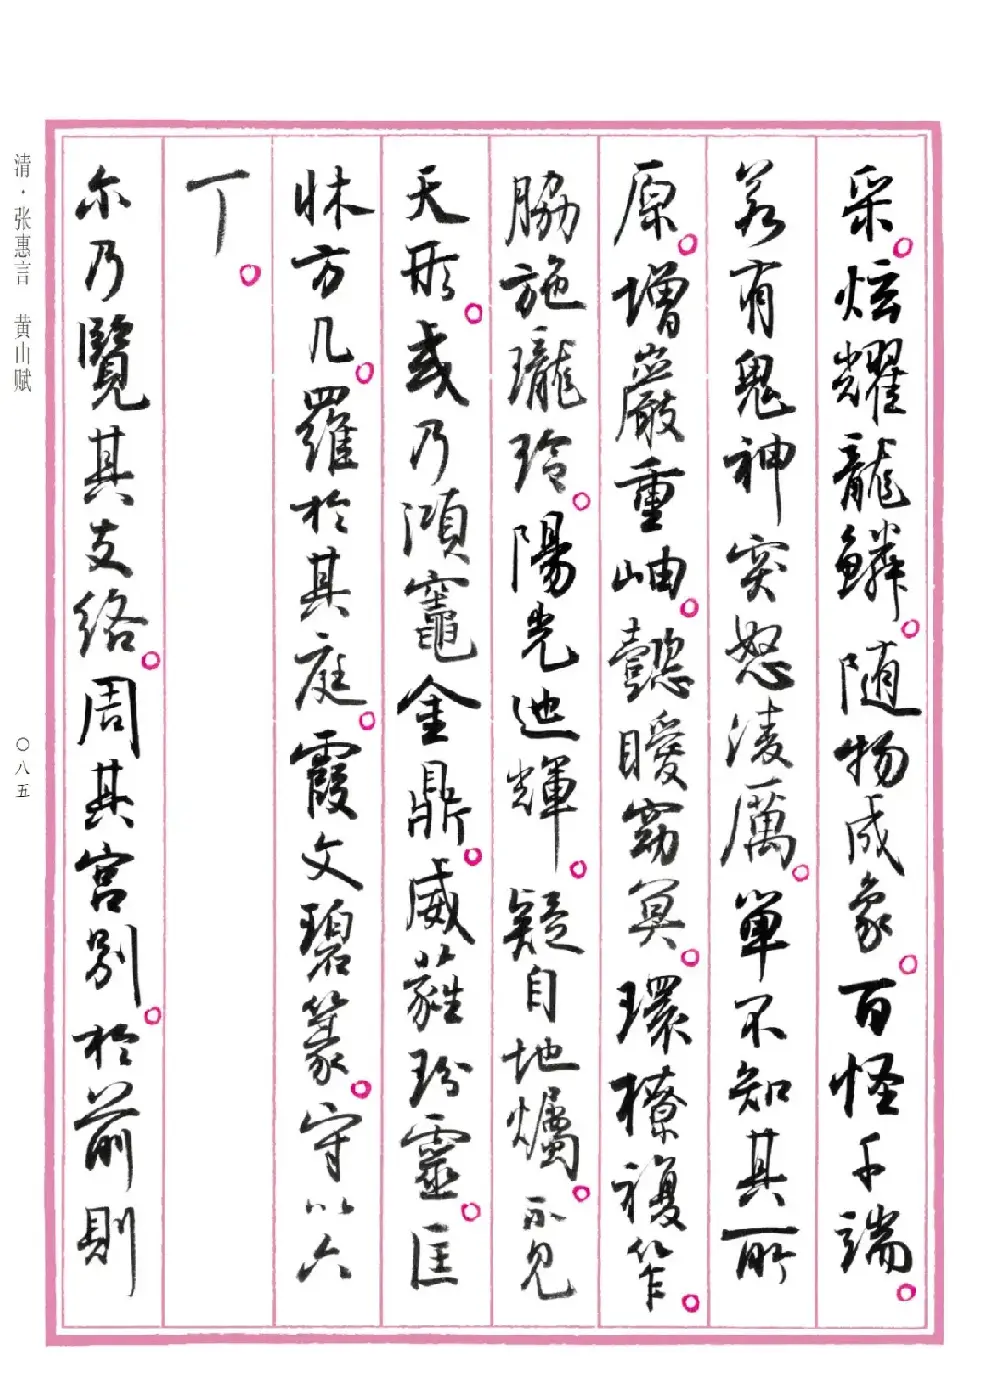 采。炫耀龍鱗。随物成象。百怪千端。
若有鬼神突怒淩厲。單不知其所
原。增巖重岫。懿曖窈冥。環橑複笮。
脇施瓏玲。陽光迆輝。疑自地爥。不見
天形。或乃澒竈金鼎。威蕤玢靈。匡
牀方几。羅於其庭。霞文碧篆。守以六
丁。
尔乃覽其支络。周其宫别。於前則
清·张惠言 黄山赋
〇八五